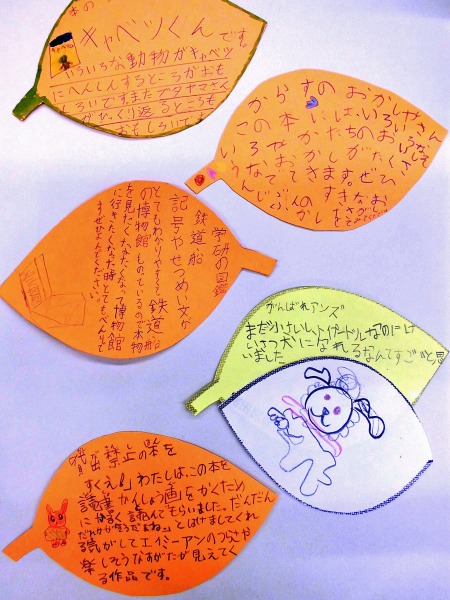 本の
キャベツくんです。
いろいろな動物がキャベツ
にへんしんするところがおも
しろいです。またブタヤマさん
がびっくり返るところも
おもしろいです。
からすのおかしやさん
この本には、いろいろな
いろやかたちのおいしそ
うなおかしがたくさ
んでてきます。ぜひ
じぶんのすきなお
かしをさがし
学研の図鑑
鉄道・船
記号やせつめい文が
とてもわかりやすく、鉄道や船
の博物館ものっているので本物
を見たくなったくなって博物館
に行きたくなった時とてもべんりで
すぜひよんでください。
がんばれアンズ
まだ小さいトイプードルなのにけ
いさつ犬になれるなんてすごいと思
いました
貸出禁止の本を
すくえ!」わたしは、この本を
読書かんしょう画をかくため
に 読んでもらいました。だんだん
とはげましてくれ
る気がしてエイミー・アンのつらさや
楽しそうなすがたが見えてく
る作品です。